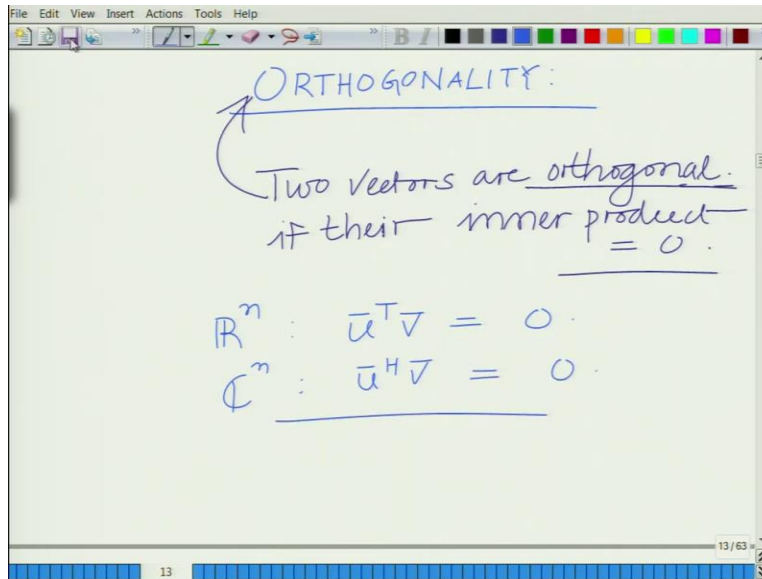 File Edit View Insert Actions Tools Help
ORTHOGONALITY:
Two vectors are orthogonal.
if their inner product
= 0.
ℝⁿ : ū^T v̄ = 0.
ℂⁿ : ū^H v̄ = 0.
13/63
13